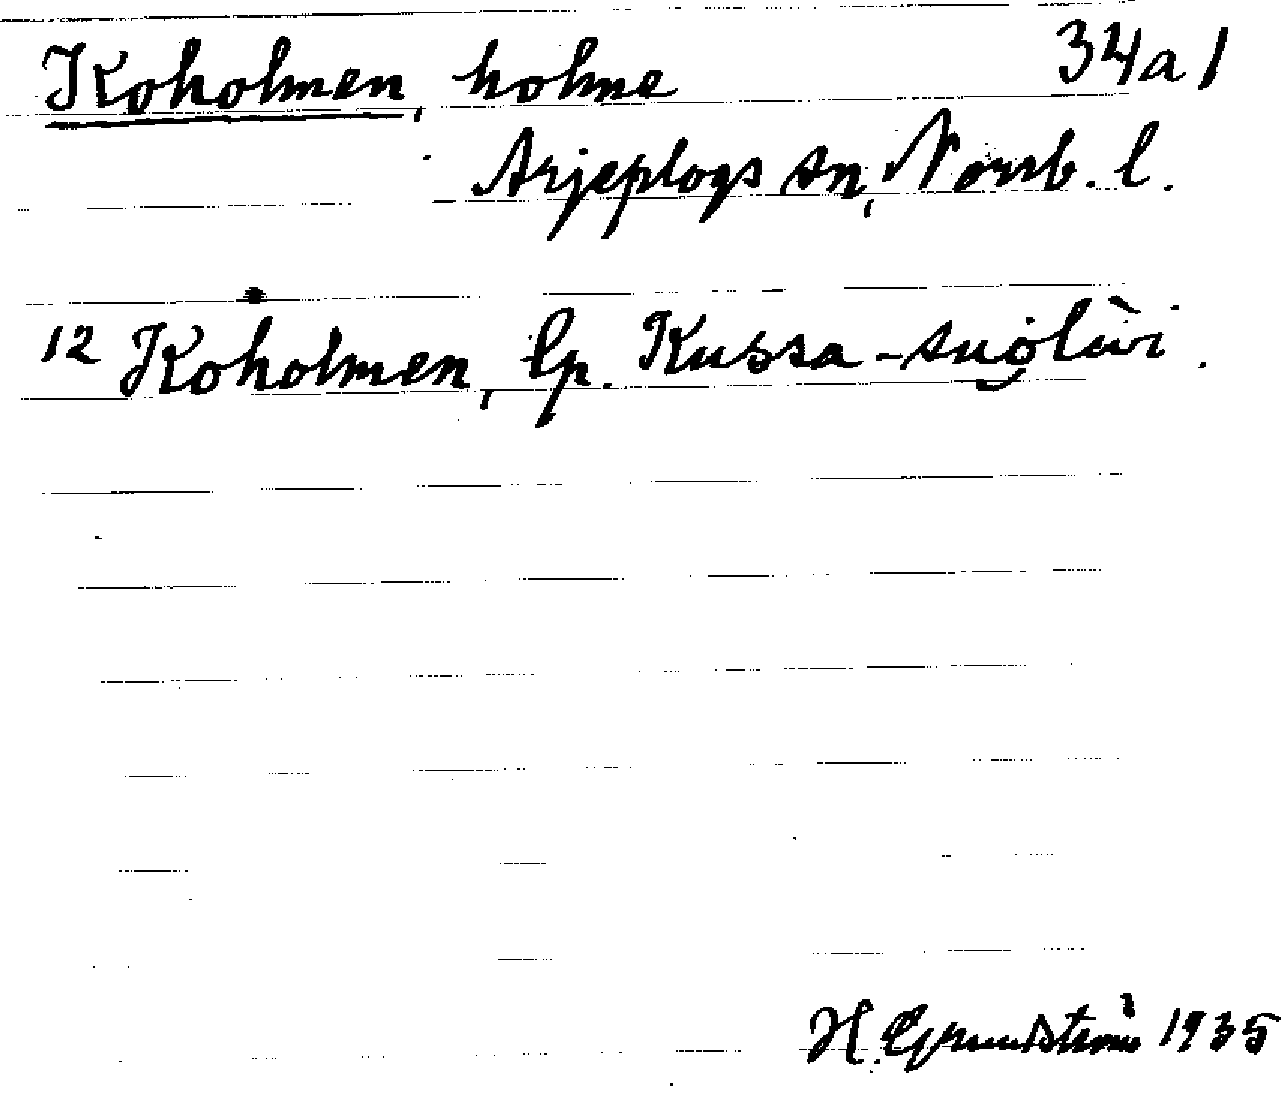 Koholmen, holme 34a1
Arjeplogs sn, Norrb. l.
12 Koholmen, lp. Kussa-
H. Grundström 1935